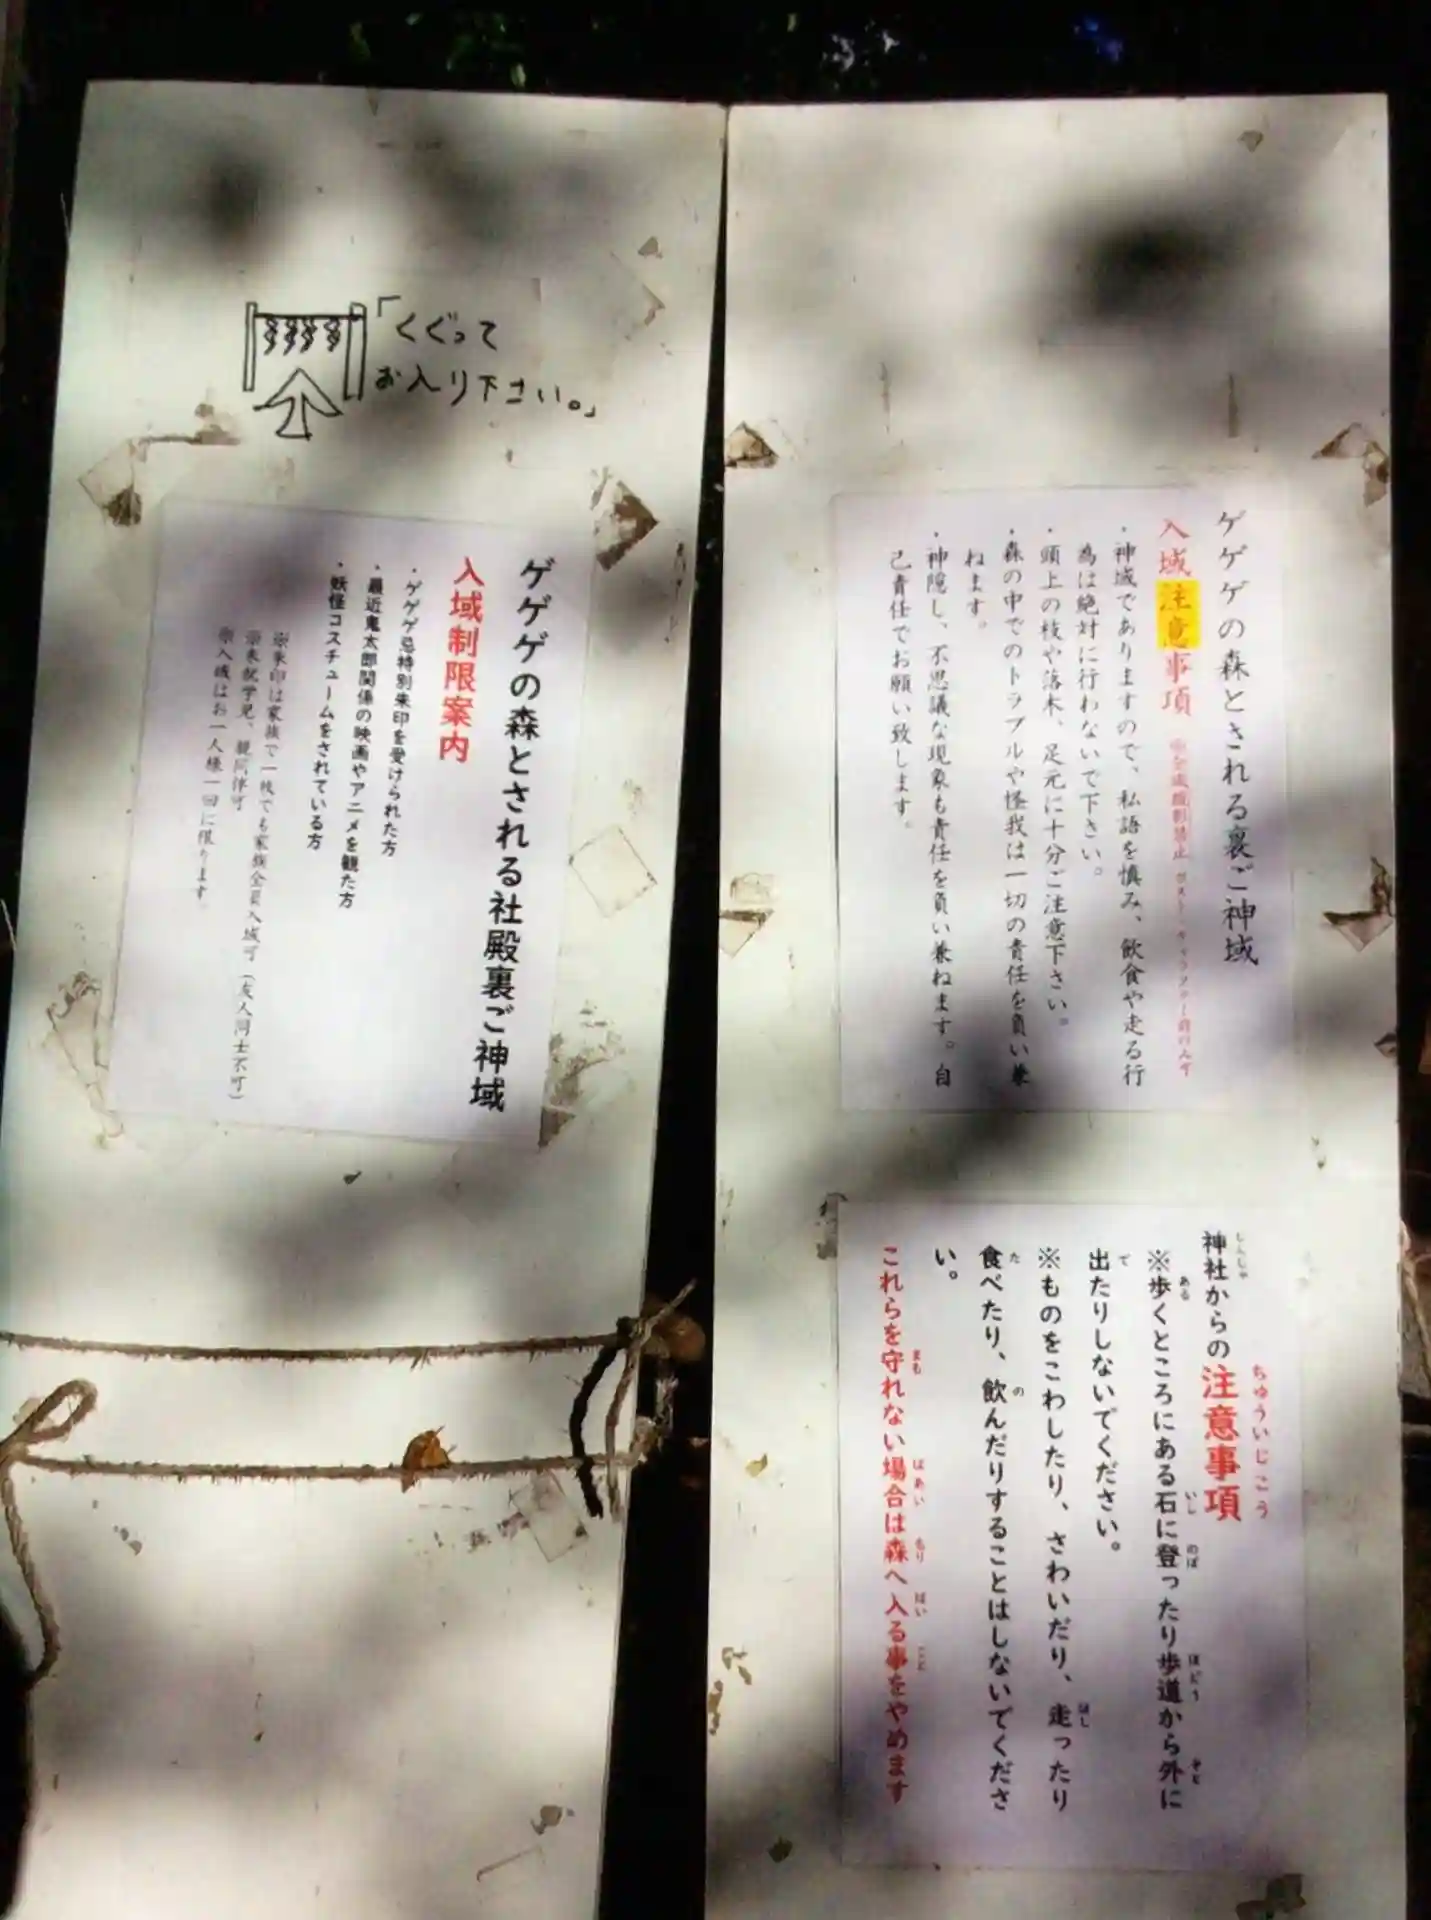 「くぐって
お入り下さい。」
ゲゲゲの森とされる社殿裏ご神域
入域制限案内
・ゲゲゲ忌特別朱印を受けられた方
・最近鬼太郎関係の映画やアニメを観た方
・妖怪コスチュームをされている方
※朱印は家族で一枚でも家族全員入域可(友人同士不可)
※未就学児、親同伴可
※入域はお一人様一回に限ります。
ゲゲゲの森とされる裏ご神域
入域注意事項 ※全域撮影禁止
・神域でありますので、私語を慎み、飲食や走る行
為は絶対に行わないで下さい。
・頭上の枝や落木、足元に十分ご注意下さい。
・森の中でのトラブルや怪我は一切の責任を負い兼
ねます。
・神隠し、不思議な現象も責任を負い兼ねます。自
己責任でお願い致します。
神社からの注意事項
※歩くところにある石に登ったり歩道から外に
出たりしないでください。
※ものをこわしたり、さわいだり、走ったり
食べたり、飲んだりすることはしないでくださ
い。
これらを守れない場合は森へ入る事をやめます